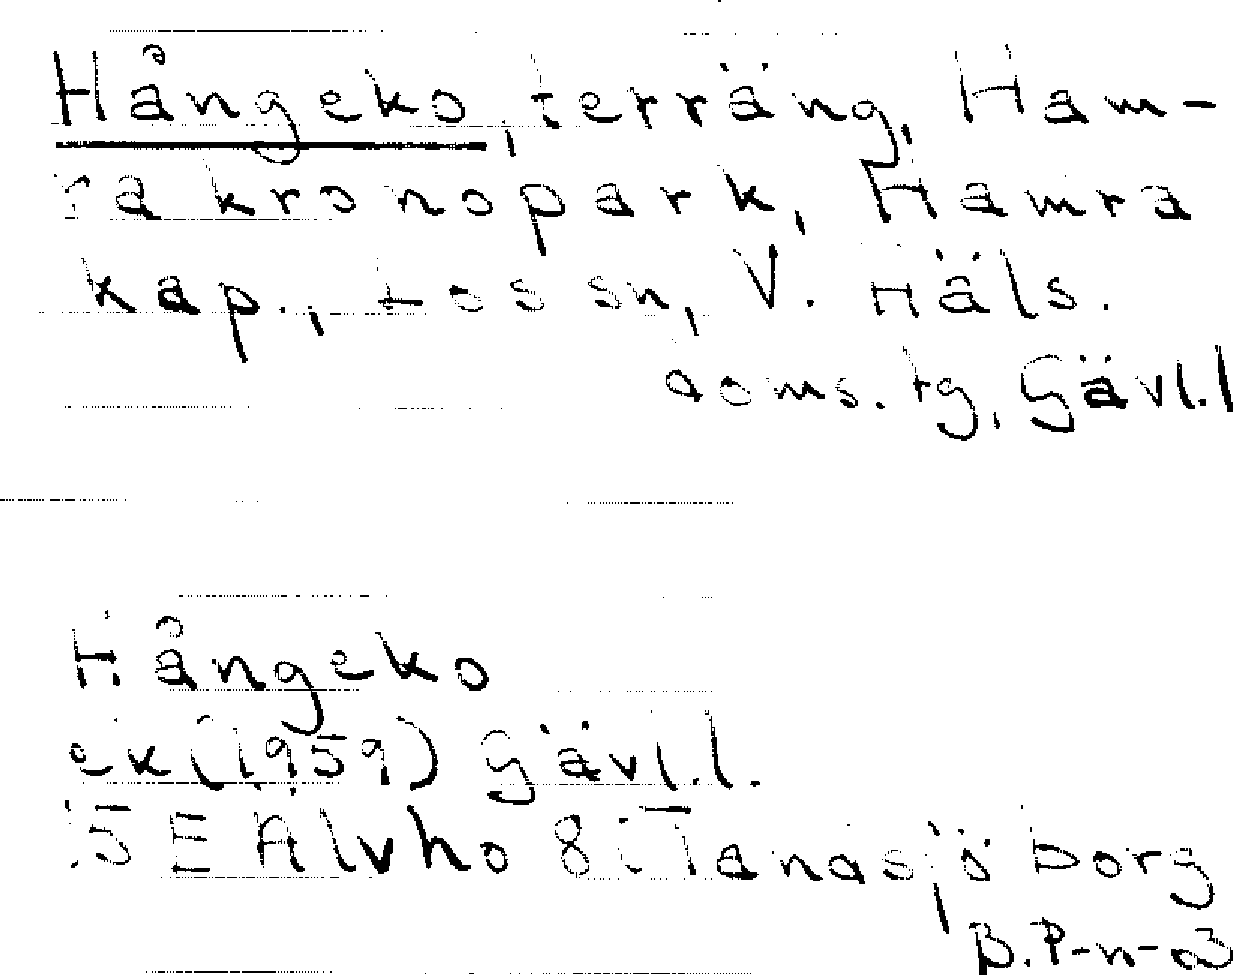 Hångeko, terräng, Ham-
ra kronopark, Hamra
kap., Los sn, V. Häls.
doms. tg, Gävl. l
Hångeko
ek (1959) Gävl. l.
15 E Alvho 8 i Tanasjö